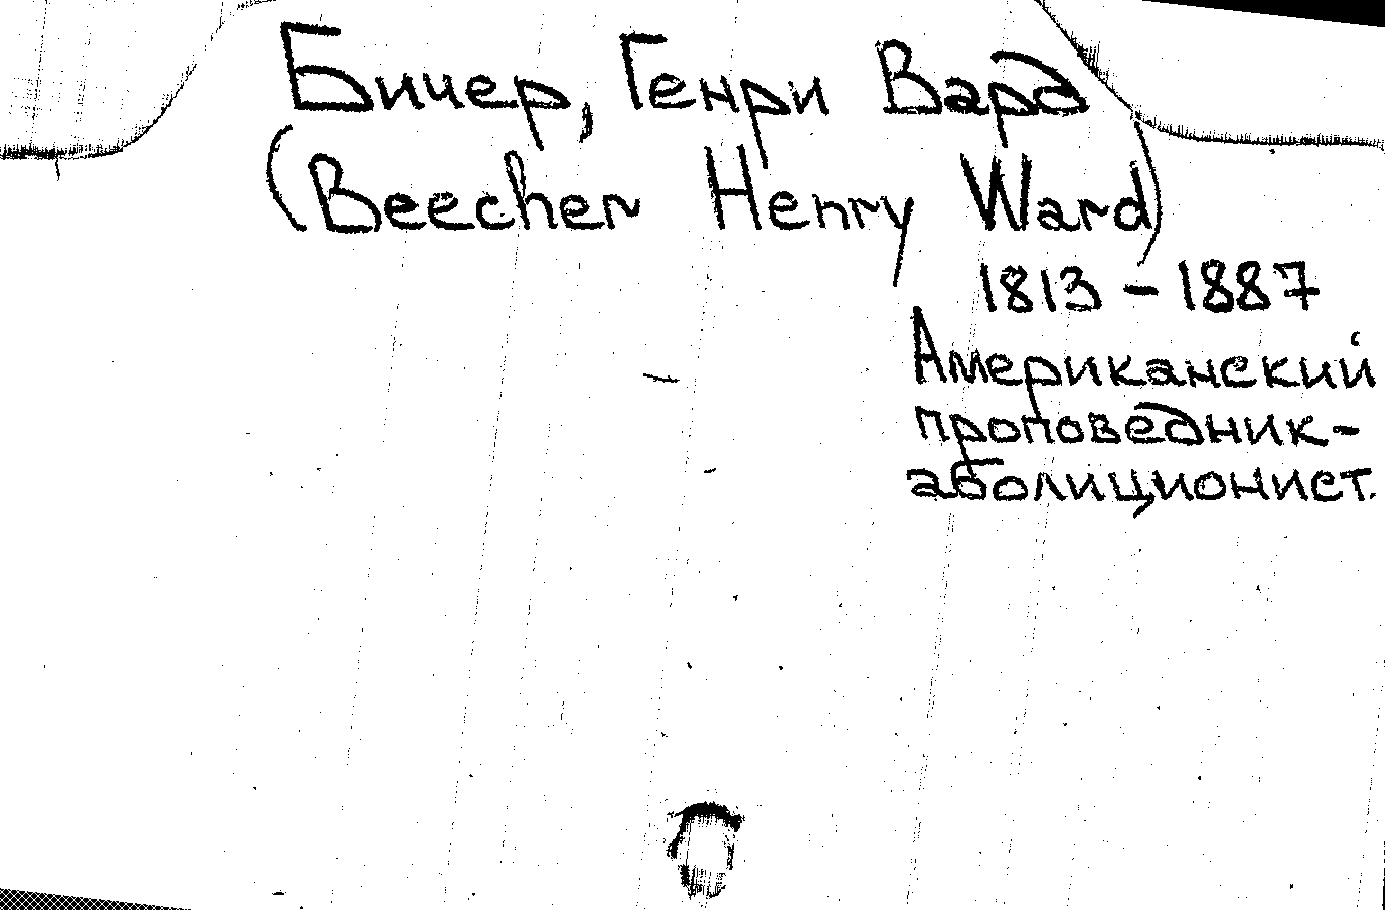 Бичер, Генри Вард
(Beecher Henry Ward)
1813 – 1887
Американский
проповедник-
аболиционист.